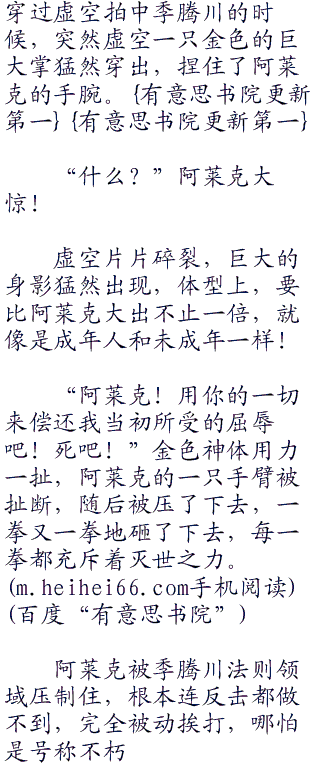 穿过虚空拍中季腾川的时
候，突然虚空一只金色的巨
大掌猛然穿出，捏住了阿莱
克的手腕。{有意思书院更新
第一}{有意思书院更新第一}
“什么？”阿莱克大
惊！
虚空片片碎裂，巨大的
身影猛然出现，体型上，要
比阿莱克大出不止一倍，就
像是成年人和未成年一样！
“阿莱克！用你的一切
来偿还我当初所受的屈辱
吧！死吧！”金色神体用力
一扯，阿莱克的一只手臂被
扯断，随后被压了下去，一
拳又一拳地砸了下去，每一
拳都充斥着灭世之力。
(m.heihei66.com手机阅读)
(百度“有意思书院”)
阿莱克被季腾川法则领
域压制住，根本连反击都做
不到，完全被动挨打，哪怕
是号称不朽